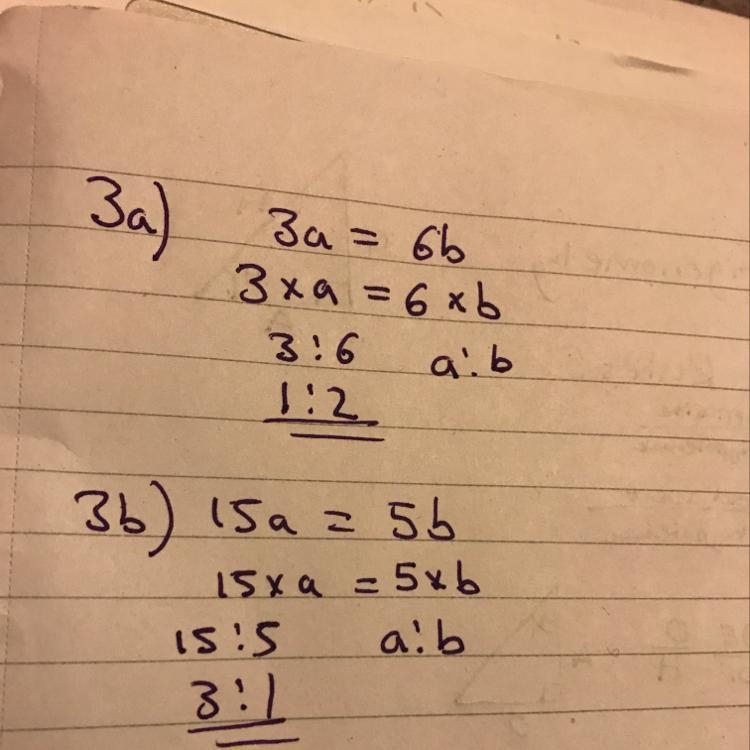 3a) 3a = 6b
3 × a = 6 × b
3 : 6 a : b
1 : 2
3b) 15a = 5b
15 × a = 5 × b
15 : 5 a : b
3 : 1